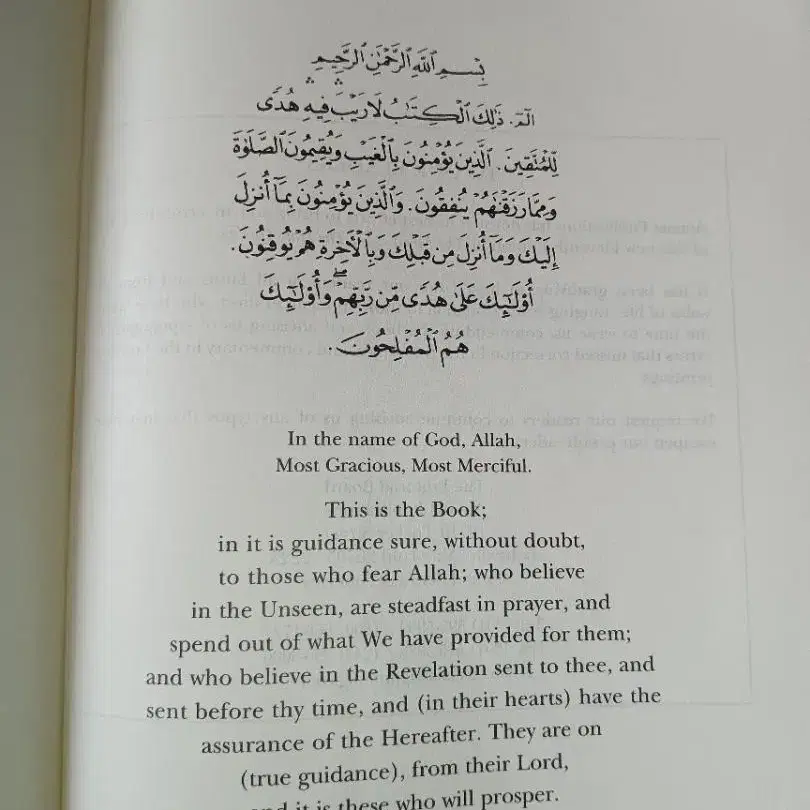 بِسْمِ ٱللَّهِ ٱلرَّحْمَٰنِ ٱلرَّحِيمِ
الٓمٓ. ذَٰلِكَ ٱلْكِتَابُ لَا رَيْبَ ۛ فِيهِ ۛ هُدًى
لِّلْمُتَّقِينَ. ٱلَّذِينَ يُؤْمِنُونَ بِٱلْغَيْبِ وَيُقِيمُونَ ٱلصَّلَوٰةَ
وَمِمَّا رَزَقْنَٰهُمْ يُنفِقُونَ. وَٱلَّذِينَ يُؤْمِنُونَ بِمَآ أُنزِلَ
إِلَيْكَ وَمَآ أُنزِلَ مِن قَبْلِكَ وَبِٱلْأَخِرَةِ هُمْ يُوقِنُونَ.
أُوْلَٰٓئِكَ عَلَىٰ هُدًى مِّن رَّبِّهِمْ ۖ وَأُوْلَٰٓئِكَ
هُمُ ٱلْمُفْلِحُونَ.
In the name of God, Allah,
Most Gracious, Most Merciful.
This is the Book;
in it is guidance sure, without doubt,
to those who fear Allah; who believe
in the Unseen, are steadfast in prayer, and
spend out of what We have provided for them;
and who believe in the Revelation sent to thee, and
sent before thy time, and (in their hearts) have the
assurance of the Hereafter. They are on
(true guidance), from their Lord,
and it is these who will prosper.